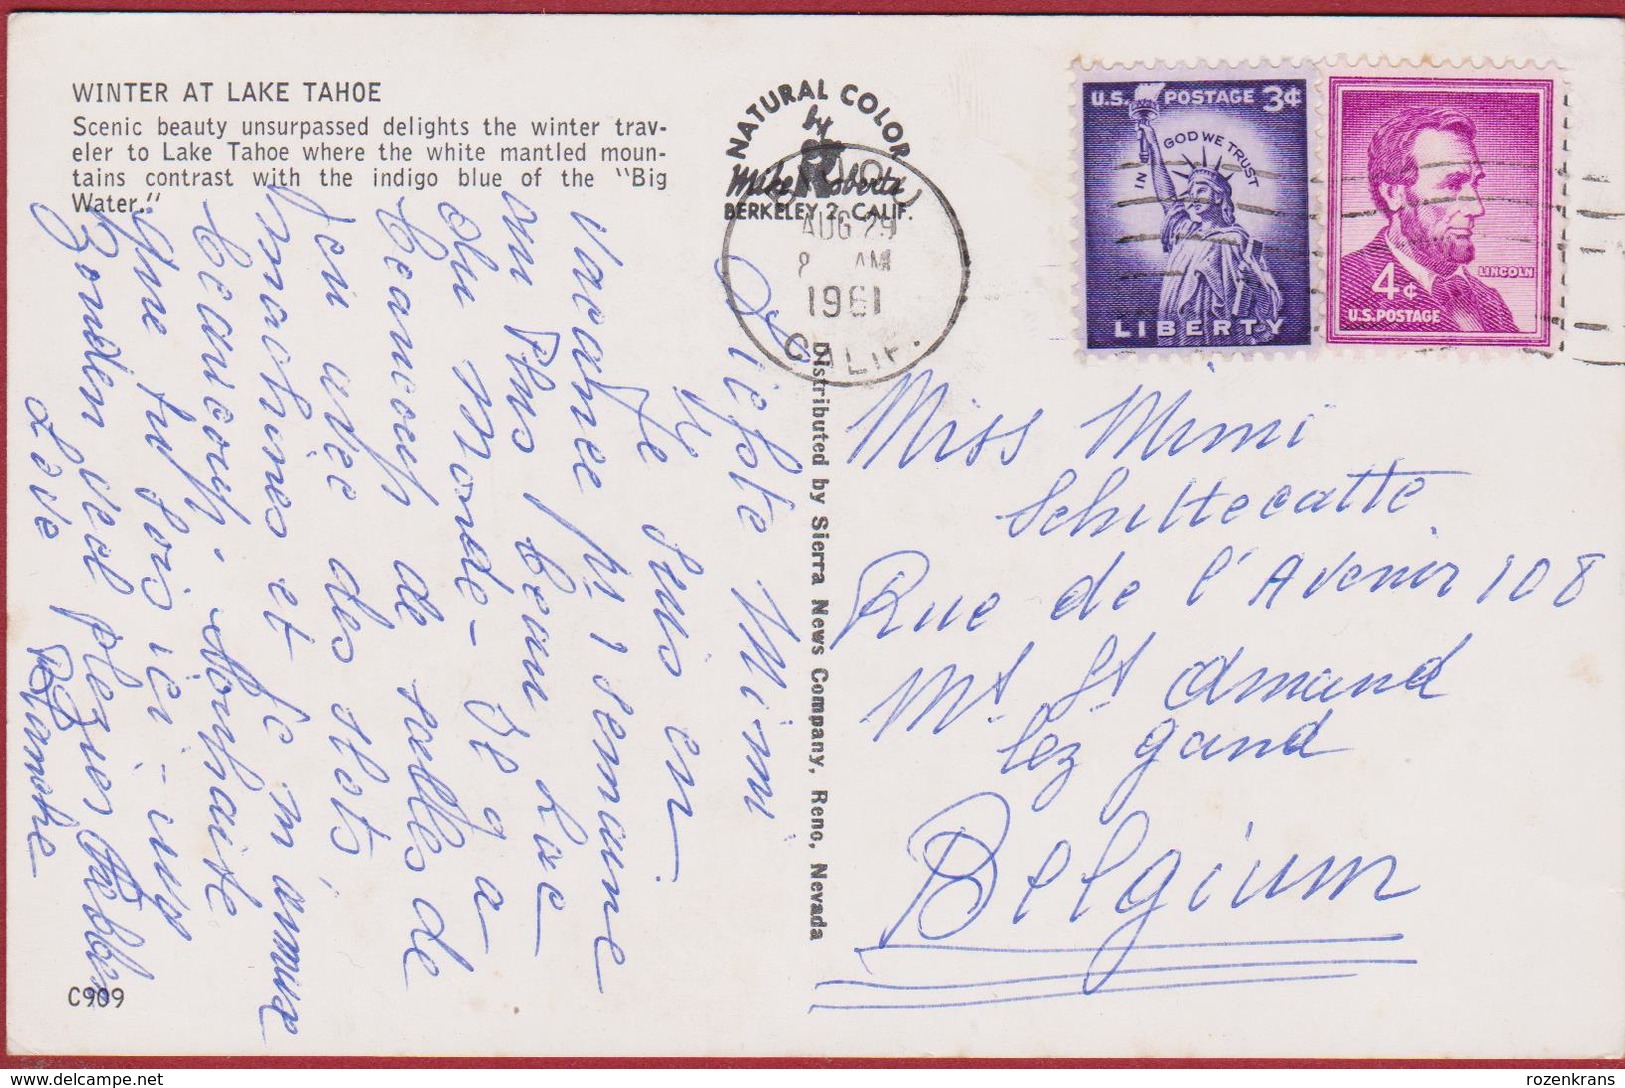 WINTER AT LAKE TAHOE
Scenic beauty unsurpassed delights the winter trav-
eler to Lake Tahoe where the white mantled moun-
tains contrast with the indigo blue of the "Big
Water."
NATURAL COLOR
by
Mike Roberts
BERKELEY 2, CALIF.
AUG 29
8 AM
1961
CALIF.
U.S. POSTAGE 3¢
IN GOD WE TRUST
LIBERTY
LINCOLN
4¢
U.S. POSTAGE
Distributed by Sierra News Company, Reno, Nevada
Liefste Mimi
Je suis en
vacances 1 semaine
au plus beau Lac
du monde - Il y a
beaucoup de salles de
jeu avec des slots
machines et je m'amuse
beaucoup.
une fois ici - wij
zouden veel plezier hebben
Love Blanche
Miss Mimi
Schiltecatte
Rue de l'Avenir 108
Mt St Amand
lez gand
Belgium
C909
rozenkrans
delcampe.net